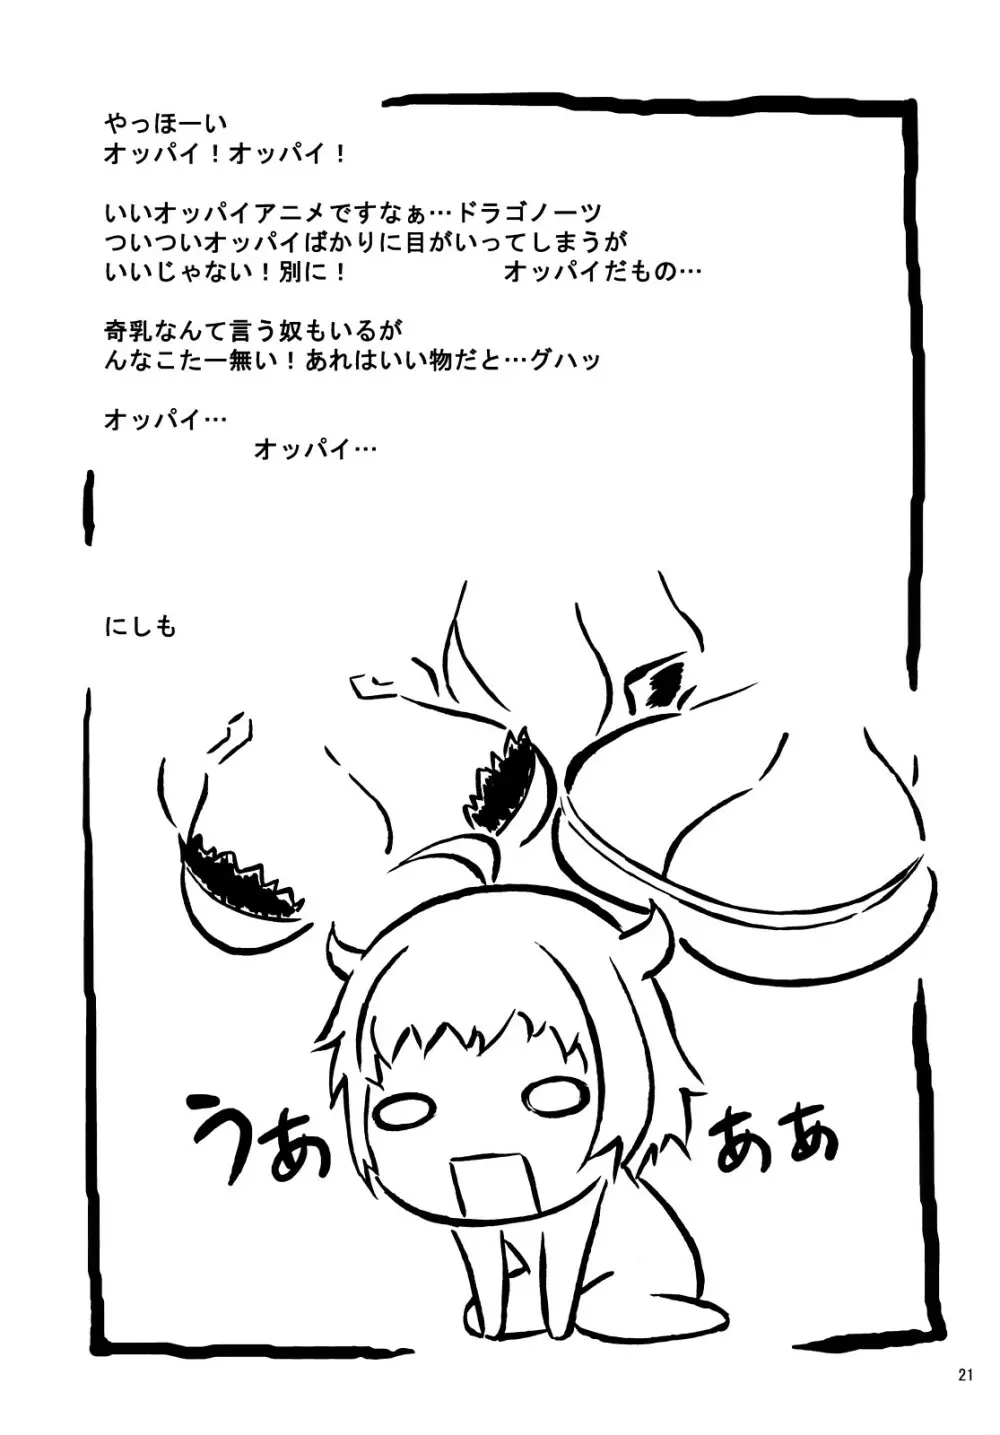 やっほーい
オッパイ！オッパイ！
いいオッパイアニメですなぁ…ドラゴノーツ
ついついオッパイばかりに目がいってしまうが
いいじゃない！別に！　　　　　　オッパイだもの…
奇乳なんて言う奴もいるが
んなこたー無い！あれはいい物だと…グハッ
オッパイ…
オッパイ…
にしも
うあ
ああ
21